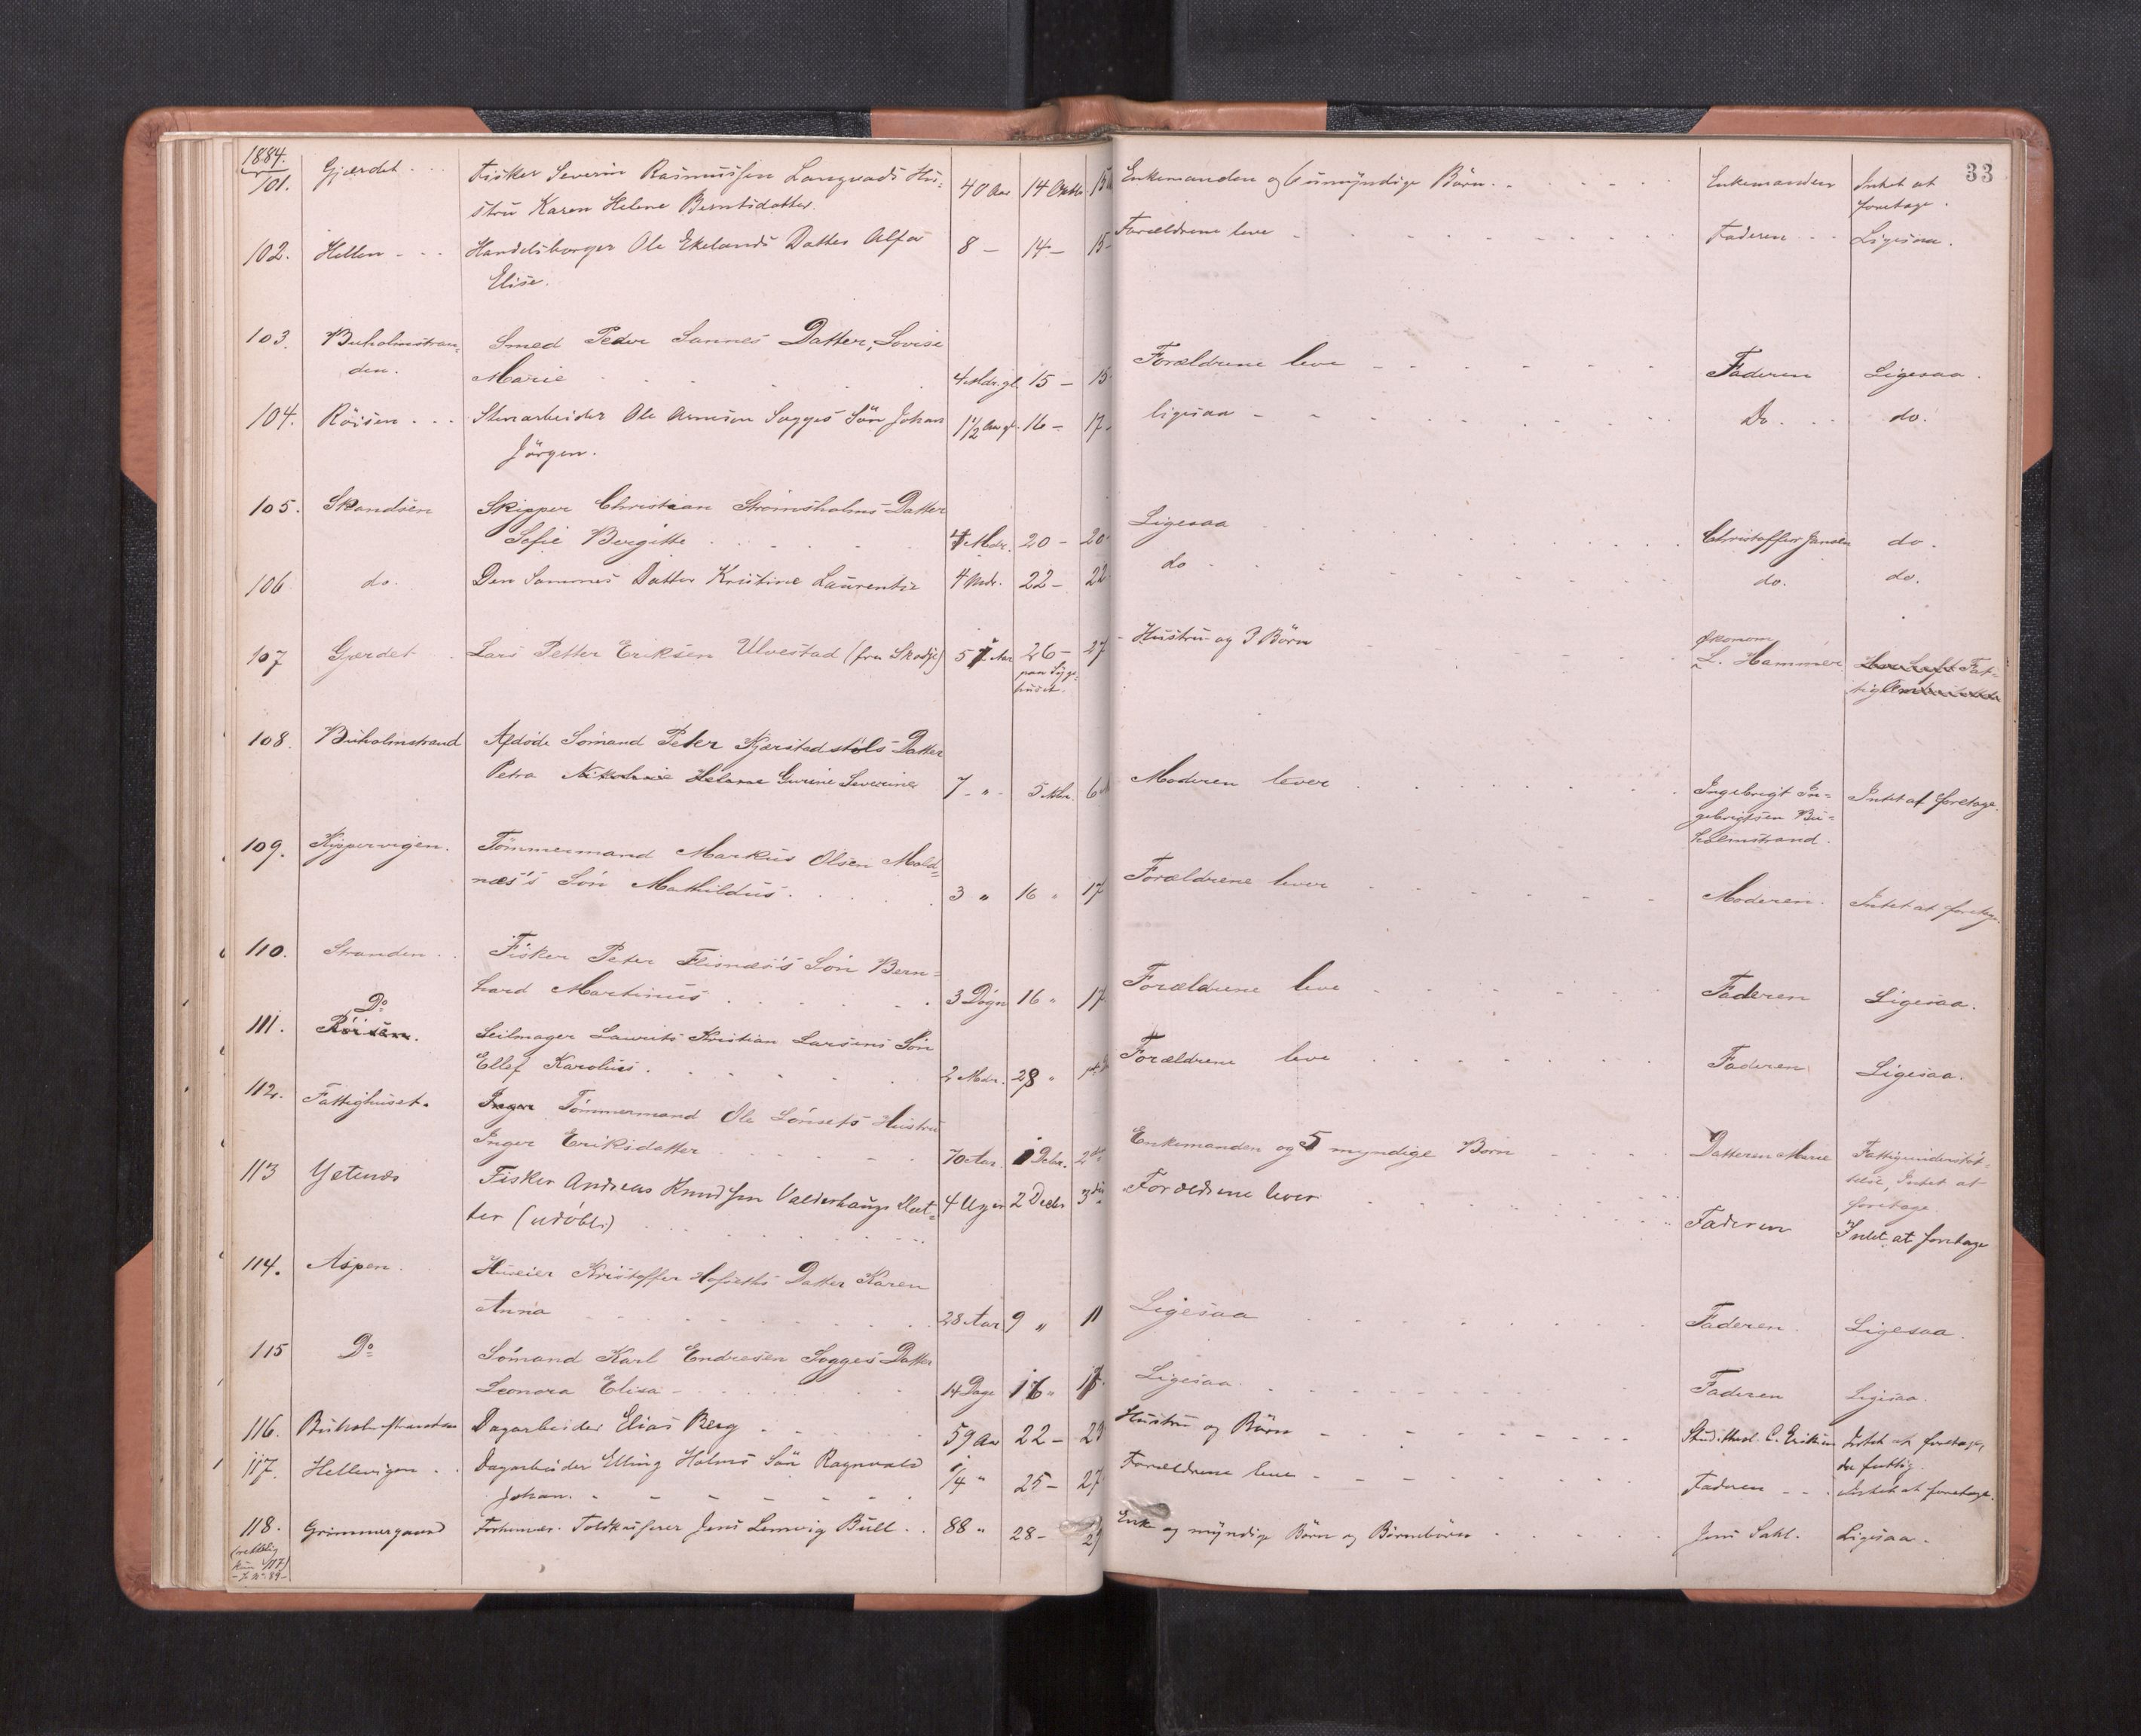 1884.
33
101. Gjærdet Fisker Severin Rasmussen Langvads Hu-
stru Karen Helene Berntsdatter. 40 Aar 14 Oktbr. 15 Enkemanden og 6 umyndige Børn. Enkemanden Intet at
foretage.
102. Hellen Handelsborger Ole Ekelands Datter Alfa
Elise. 8 - 14 - 15 - Forældrene leve Faderen Ligesaa.
103. Buholmstran-
den. Smed Peder Sannes Datter, Lovise
Marie 4 Mdr. gl. 15 - 15 Forældrene leve Faderen Ligesaa.
104. Röisen Stenarbeider Ole Arnesen Sogges Sön Johan
Jörgen. 1 1/2 Aar gl. 16 - 17. ligesaa Do. do.
105. Skandsen Skipper Christian Strömsholms Datter
Sofie Bergitte 4 Mdr. 20 - 20 Ligesaa Christoffer Jansen do.
106 do. Den Sammes Datter Kristine Laurentze 4 Mdr. 22 - 22 do do. do.
107 Gjerdet Lars Petter Eriksen Ulvestad (fra Skodje) 57 Aar 26 -
paa Syge-
huset. 27 - Hustru og 3 Börn Økonom
L. Hammer Fat-
tig
108. Buholmstrand Afdöde Sömand Peter Kjærstadstöls Datter
Petra Nikoline Helene Gurine Severine 7 - " - 5 Nbr. 6 Moderen lever Ingebrigt In-
gebrigtsen Bu-
holmstrand. Intet at foretage.
109. Kippervigen. Tömmermand Markus Olsen Mold-
næs's Sön Mathildus. 3 " 16 " 17 Forældrene lever Moderen. Intet at foretage.
110. Stranden. Fisker Peter Flisnæs's Sön Bern-
hard Martinus 3 Dögn 16 " 17 Forældrene leve Faderen Ligesaa.
111. Do
Röisen. Seilmager Laurits Kristian Larsens Sön
Ellef Karolius. 2 Mdr. 28 " Forældrene leve Faderen Ligesaa.
112. Fattighuset. Inger Tömmermand Ole Lönsets Hustru
Inger Eriksdatter 70 Aar. 1 Debr. 2den Enkemanden og 5 myndige Börn Datteren Marie Fattigunderstöt-
telse, Intet at
foretage.
113 Yetnes Fisker Andreas Knudsen Valderhaugs Dat-
ter (udöbt) 4 Uger 2 Decbr 3die Forældrene lever Faderen Intet at foretage
114. Aspen. Huseier Kristoffer Hofseths Datter Karen
Anna 28 Aar 9 " 11 Ligesaa Faderen. Ligesaa.
115 Do Sömand Karl Endresen Sogges Datter
Leonora Elisa 14 Dage 16 " Ligesaa. Faderen Ligesaa.
116. Buholmstranden Dagarbeider Elias Berg 59 Aar 22 - 23 Hustru og Börn C. Eriksen Intet at foretage,
da fattig.
117. Hellevigen Dagarbeider Elling Holms Sön Ragnvald
Johan. 1/4 " 25 - 27 Forældrene leve Faderen Intet at foretage.
118. Grimmergaard Forhenvær. Toldkasserer Jens Lemvig Bull 88 " 28 - 29 Enke og myndige Börn og Börnebörn Jens Dahl. Ligesaa.
(rettelig
kun 117)